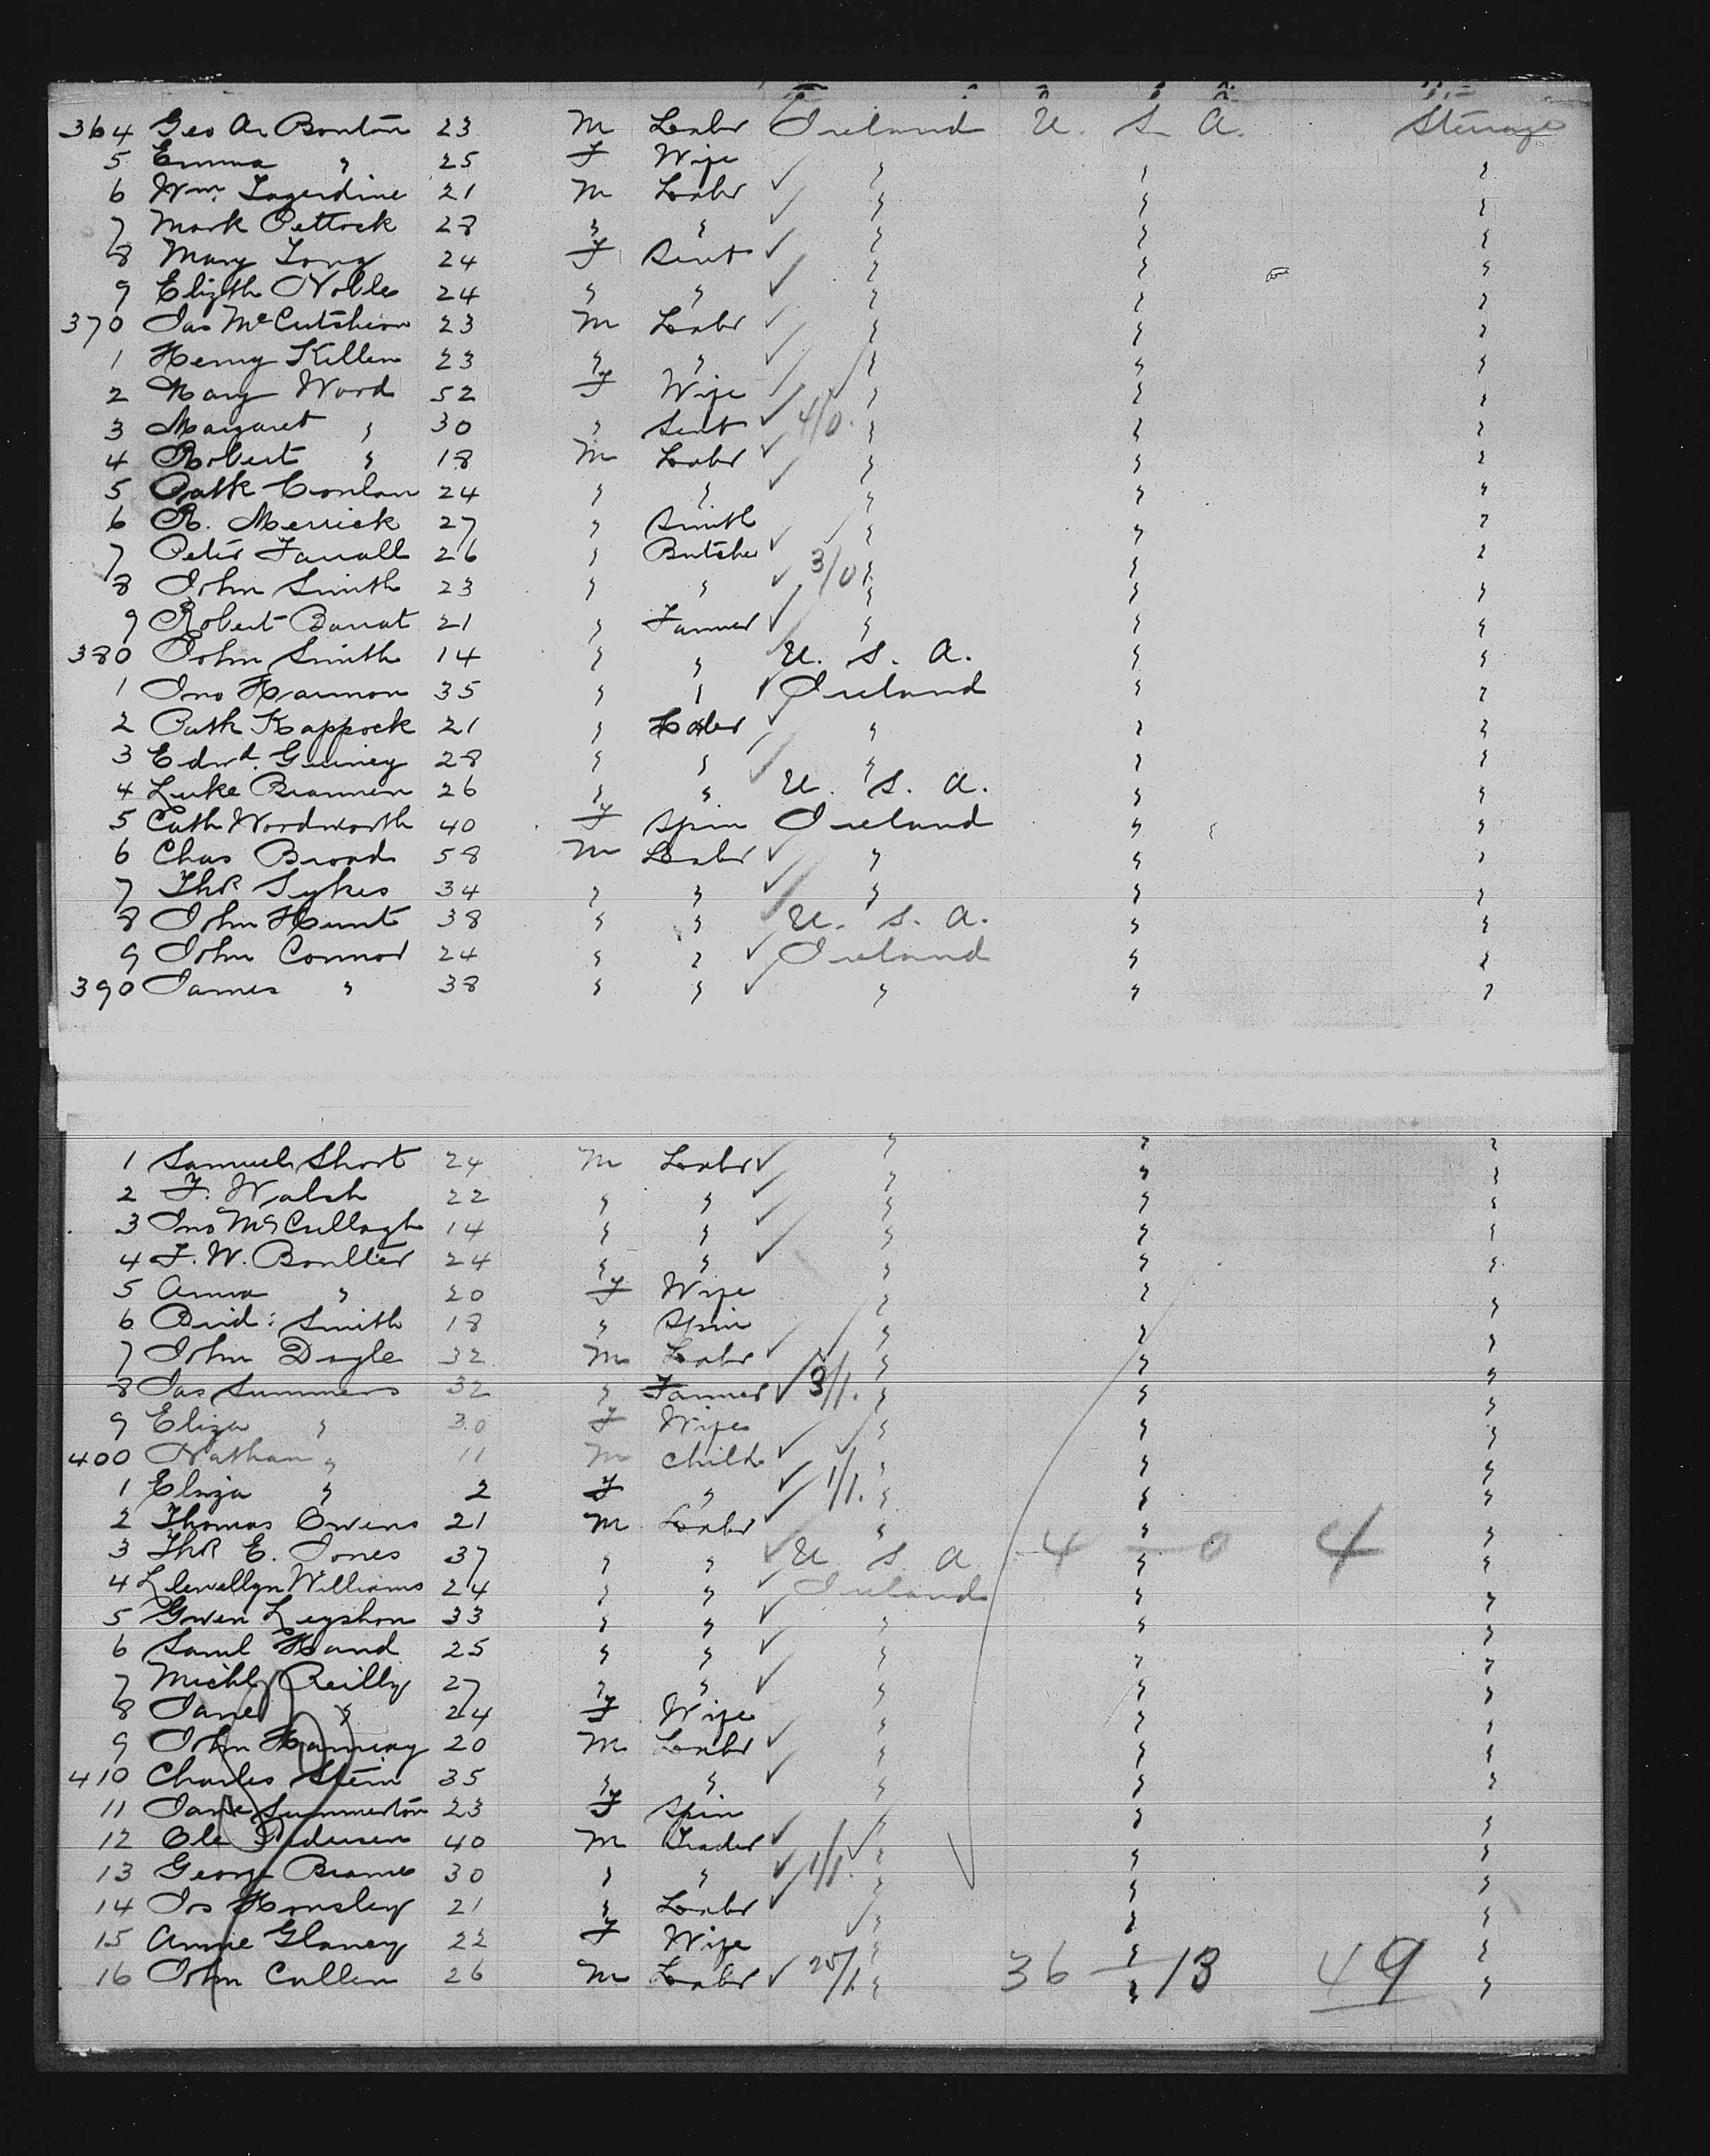 364 Geo A. Bonton 23 M Labr Ireland U. S. A. Steerage
5 Emma " 25 F Wife " " "
6 Wm. Lagerdine 21 M Labr " " "
7 Mark Pettock 28 " " " " "
8 Mary Long 24 F Servt " " "
9 Elizth Noble 24 " " " " "
370 Jas McCutcheon 23 M Labr " " "
1 Henry Killen 23 " " " " "
2 Mary Wood 52 F Wife " " "
3 Margaret " 30 " Servt 4/0 " " "
4 Robert " 18 M Labr " " "
5 Patk Conlan 24 " " " " "
6 R. Merrick 27 " Smith " " "
7 Peter Farrall 26 " Butcher " " "
8 John Smith 23 " " 3/0 " " "
9 Robert Barrat 21 " Farmer " " "
380 John Smith 14 " " U. S. A. " "
1 Jno Harmon 35 " " Ireland " "
2 Patk Kappock 21 " Labr " " "
3 Edwd. Guiney 28 " " " " "
4 Luke Brannen 26 " " U. S. A. " "
5 Cath Wordsworth 40 F Spin Ireland " "
6 Chas Broad 58 M Labr " " "
7 Thos Sykes 34 " " " " "
8 John Hunt 38 " " U. S. A. " "
9 John Connor 24 " " Ireland " "
390 James " 38 " " " " "
1 Samuel Short 24 M Labr " " "
2 F. Walsh 22 " " " " "
3 Jno McCullagh 14 " " " " "
4 F. W. Boulter 24 " " " " "
5 Anna " 20 F Wife " " "
6 Brid: Smith 18 " Spin " " "
7 John Dagle 32 M Labr " " "
8 Jas Summers 32 " Farmer 3/1. " " "
9 Eliza " 30 F Wife " " "
400 Nathan " 11 M Child " " "
1 Eliza " 2 F " 1/1. " " "
2 Thomas Owens 21 M Labr " " "
3 Thos E. Jones 37 " " U S A 4 — 0 4 " "
4 Llewellyn Williams 24 " " Ireland " "
5 Gwen Leyshon 33 " " " " "
6 Saml Hand 25 " " " " "
7 Michl Reilly 27 " " " " "
8 Jane " 24 F Wife " " "
9 John Hannay 20 M Labr " " "
410 Charles Stein 35 " " " " "
11 Jane Summerton 23 F Spin " " "
12 Ole Pedersen 40 M Trader " " "
13 George Brame 30 " " 1/1. " " "
14 Jos Hornsley 21 " Labr " " "
15 Annie Glaney 22 F Wife " " "
16 John Cullen 26 M Labr 25/1. " 36 — 13 49 " "